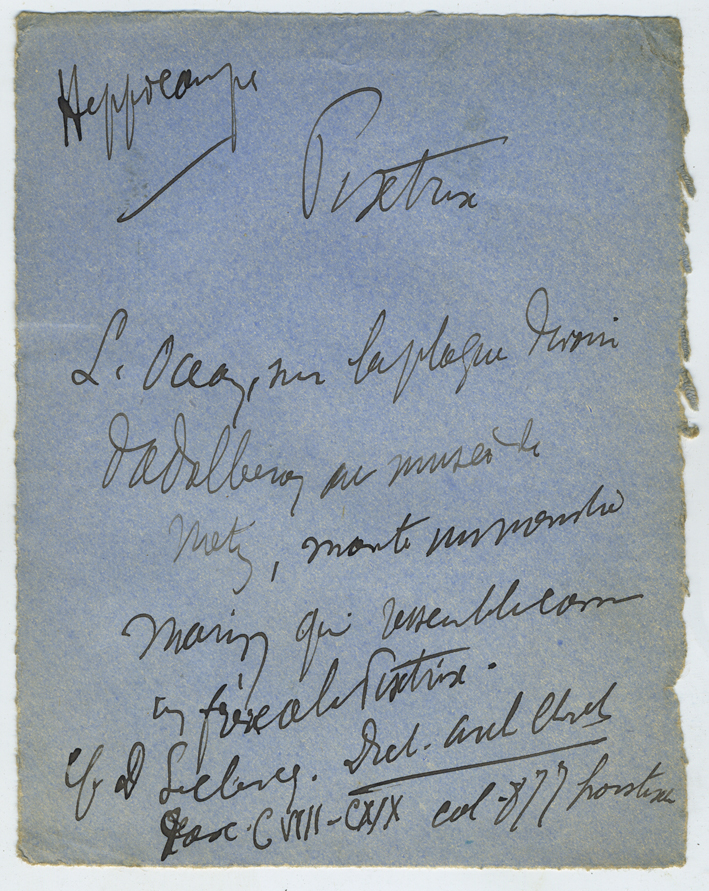 Hippocampe
Pistrix
L'Océan, sur la plaque d'ivoire
d'Adalberon au musée de
Metz, monte un monstre
marin qui ressemble comme
un frère à la Pistrix.
cf D Leclercq. Dict. arch Chret
Fasc. CVIII-CXIX col. 877